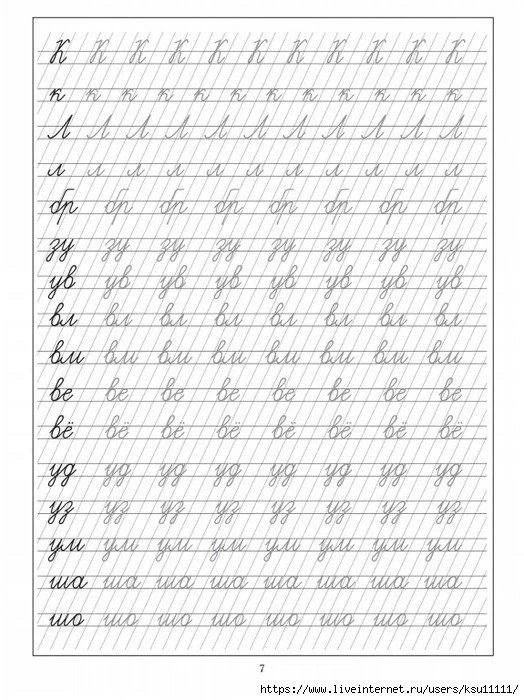 К К К К К К К К К К К
к к к к к к к к к к к к
Л Л Л Л Л Л Л Л Л Л Л
л л л л л л л л л л л
бр бр бр бр бр бр бр бр
зу зу зу зу зу зу зу зу
ув ув ув ув ув ув ув ув
вл вл вл вл вл вл вл вл
вм вм вм вм вм вм вм вм
ве ве ве ве ве ве ве ве
вё вё вё вё вё вё вё вё
уд уд уд уд уд уд уд уд
уз уз уз уз уз уз уз уз
ум ум ум ум ум ум ум ум
ша ша ша ша ша ша ша ша
шо шо шо шо шо шо шо шо
7
https://www.liveinternet.ru/users/ksu11111/